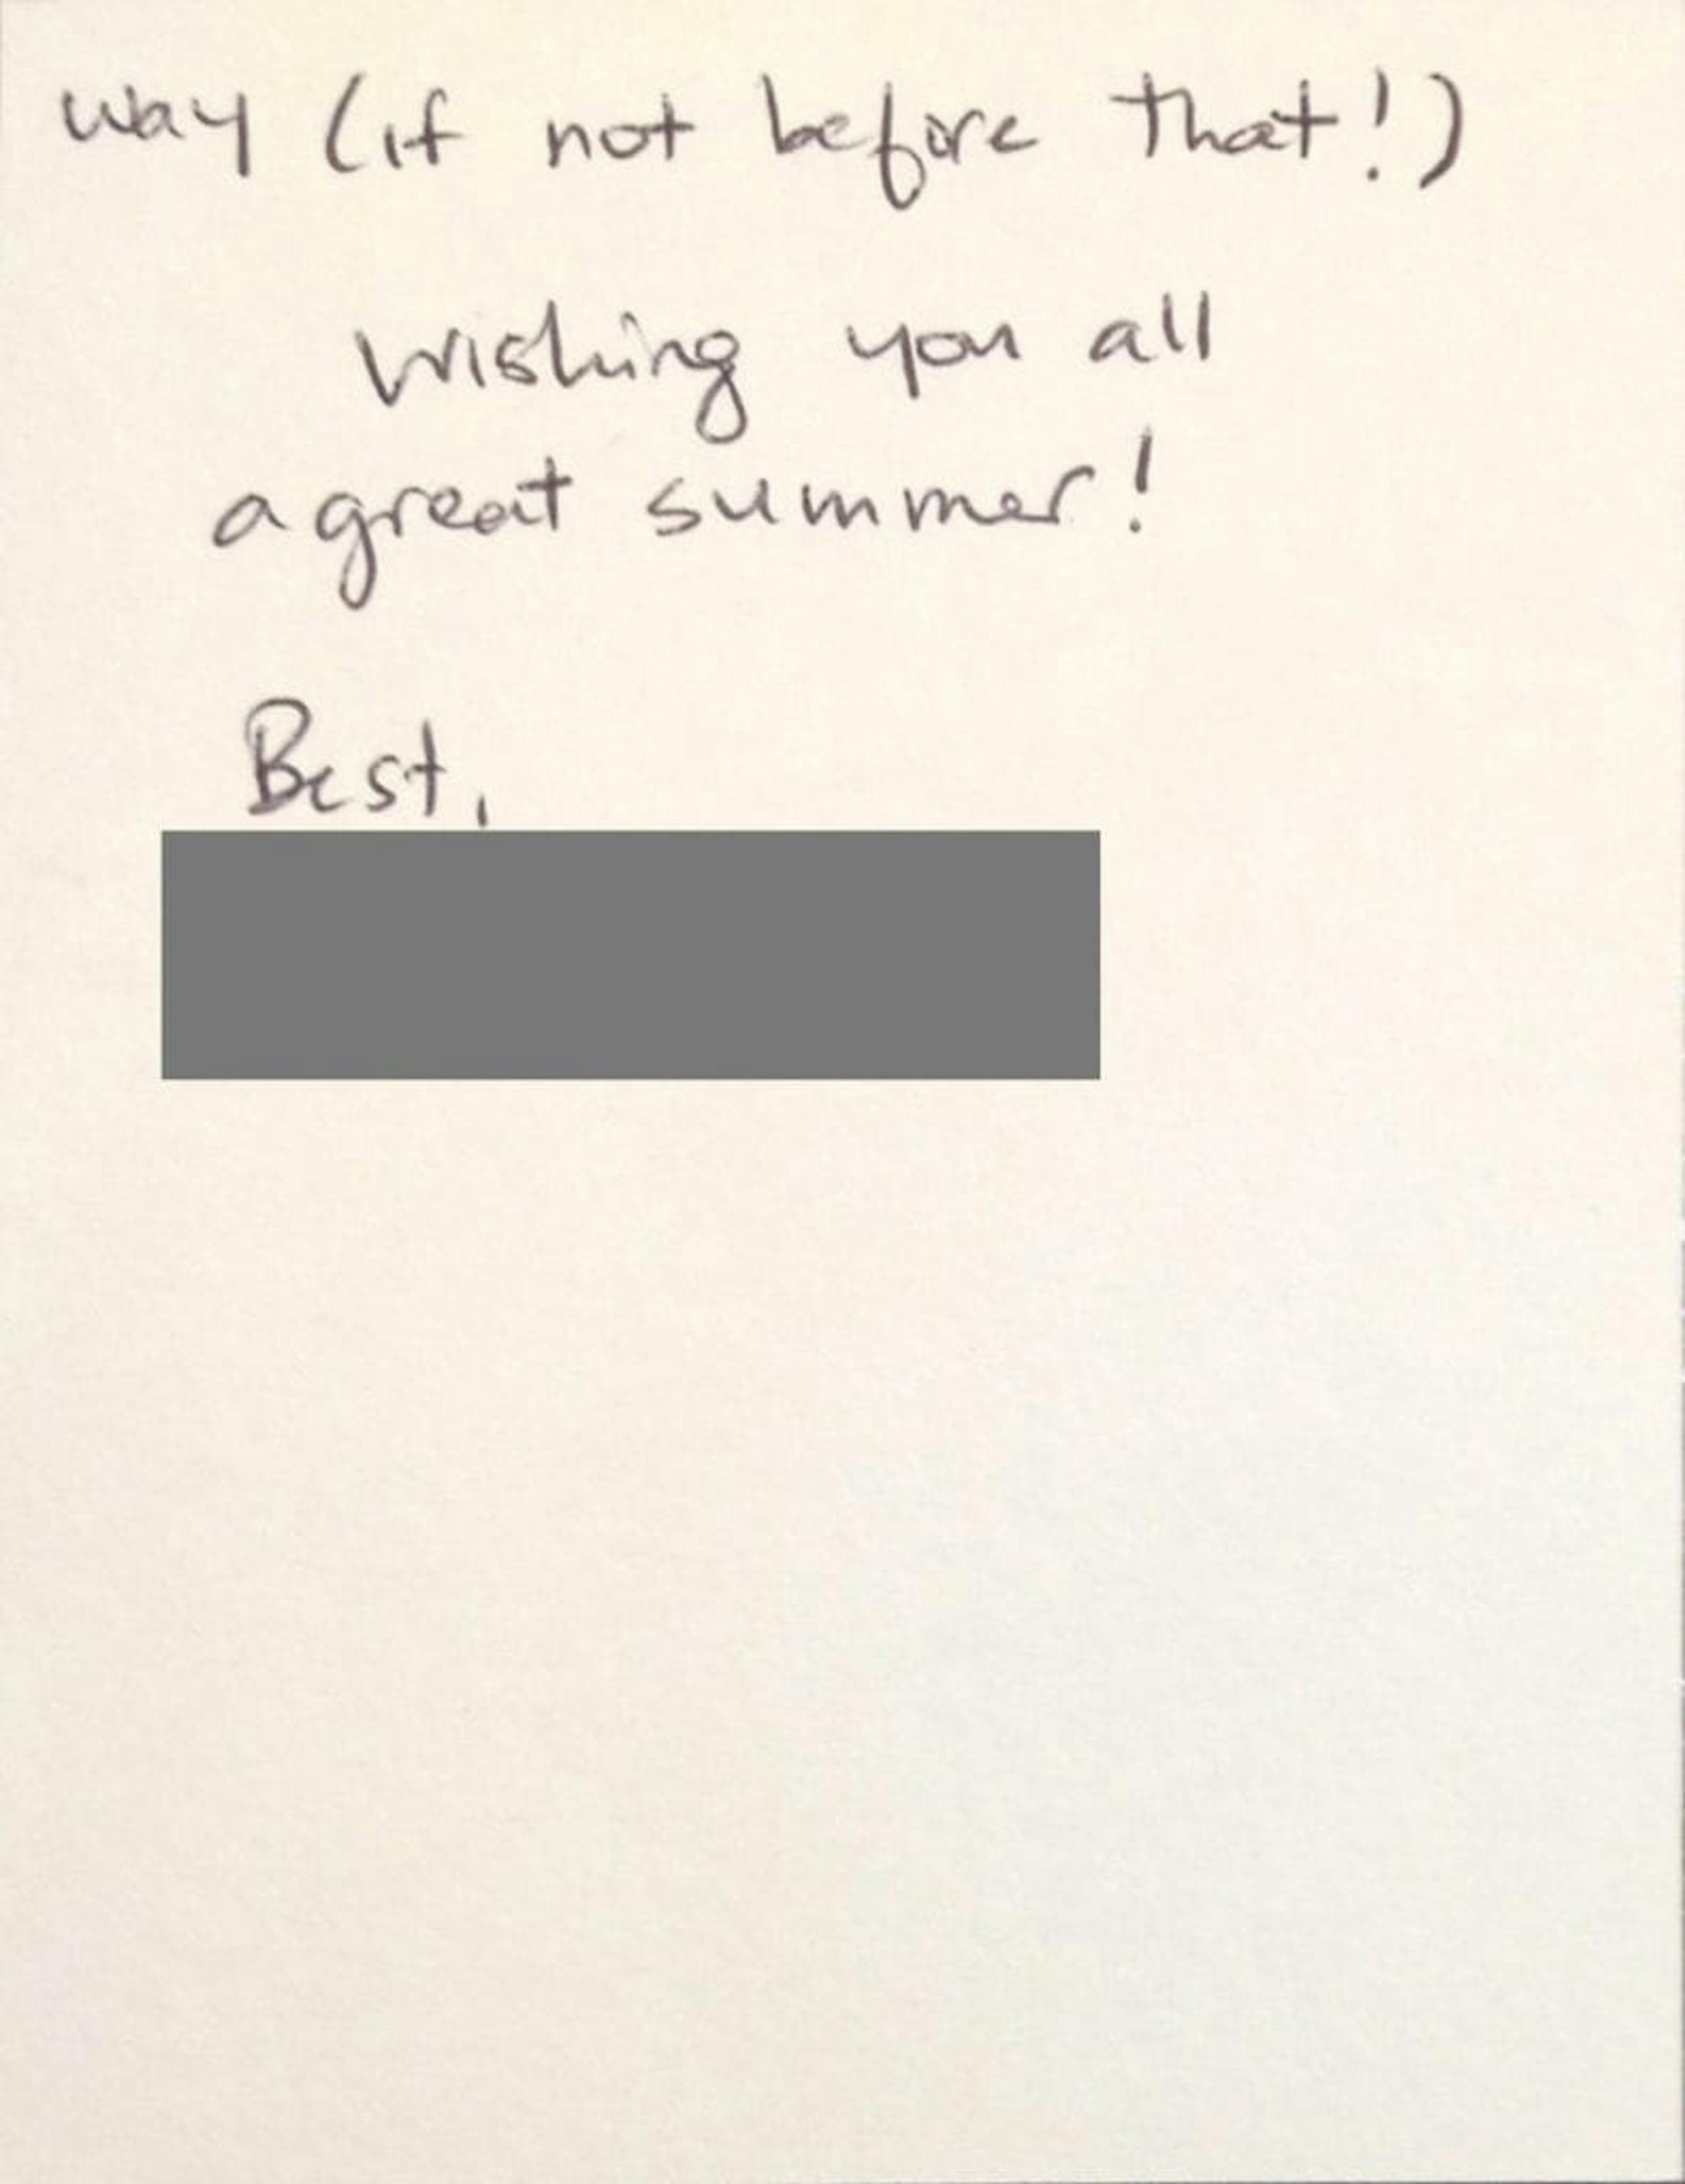 way (if not before that!)
Wishing you all
a great summer!
Best,